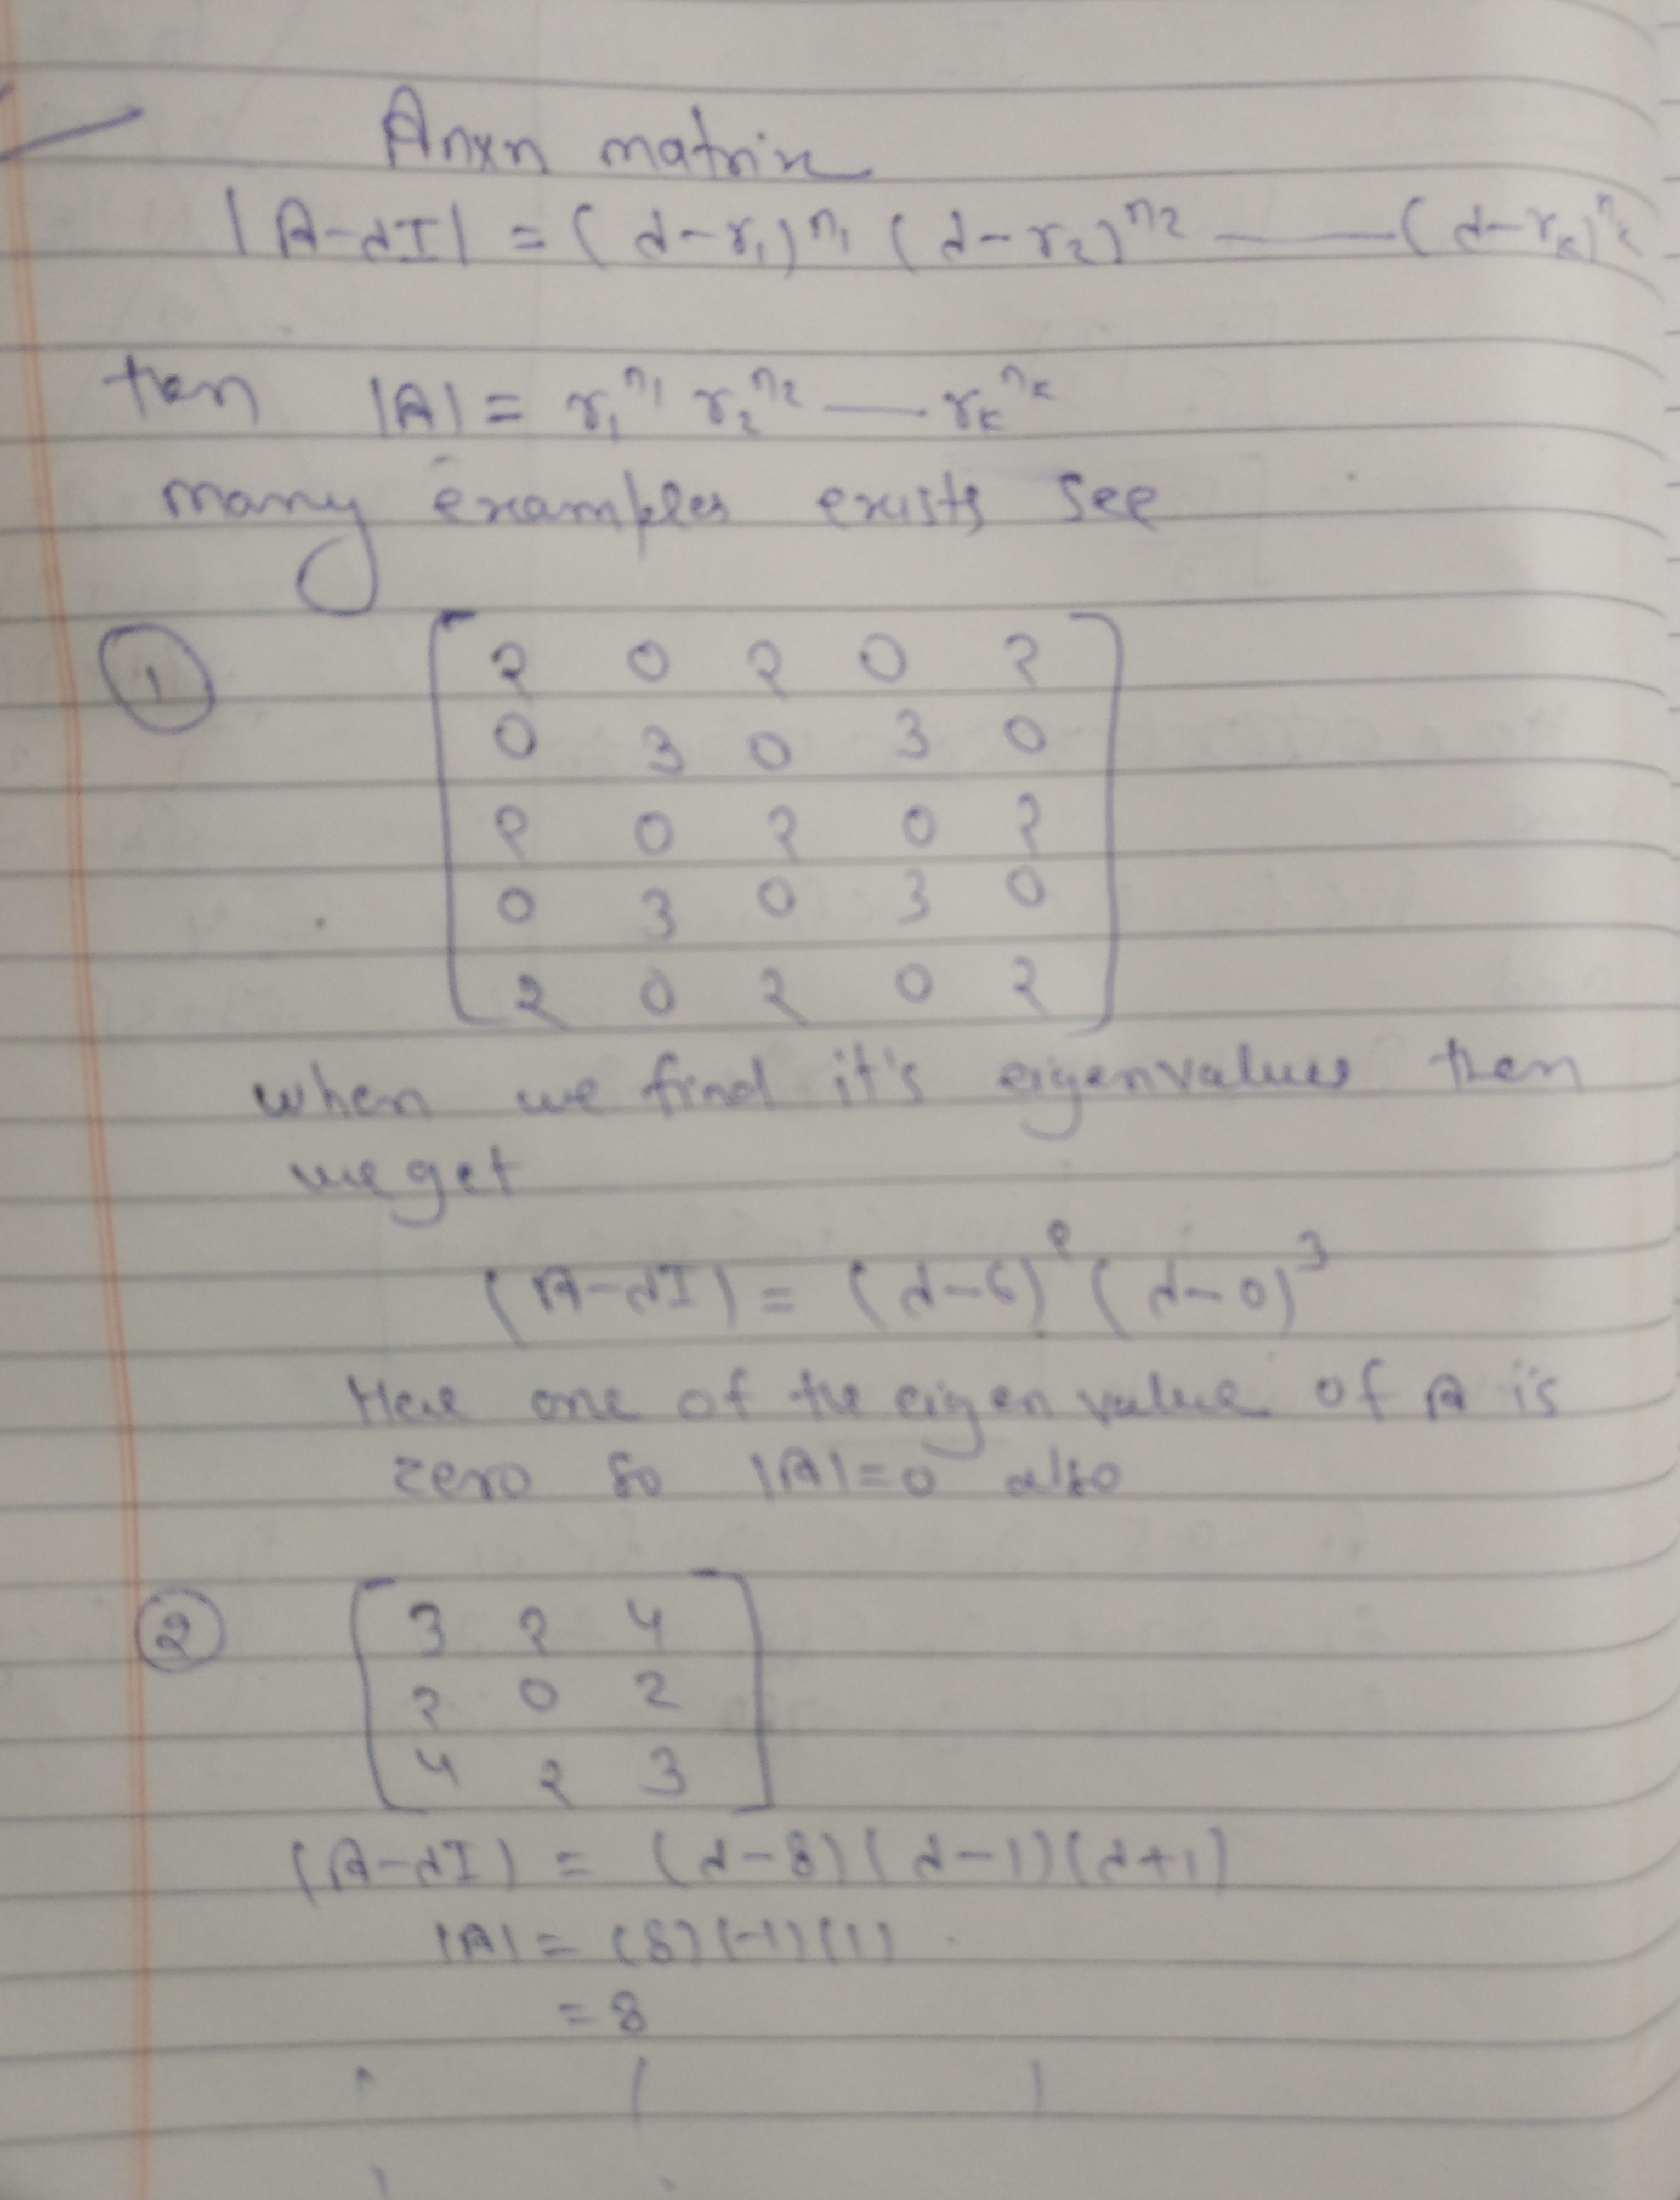 Anxn matrix
|A-λI| = (λ-r₁)ⁿ¹ (λ-r₂)ⁿ² —— (λ-rₖ)ⁿᵏ
then |A| = r₁ⁿ¹ r₂ⁿ² — rₖⁿᵏ
many examples exists see
① 2 0 2 0 2
0 3 0 3 0
2 0 2 0 2
0 3 0 3 0
2 0 2 0 2
when we find it's eigenvalues then
we get
(A-λI) = (λ-6)² (λ-0)³
Here one of the eigen value of A is
zero so |A|=0 also
② 3 2 4
2 0 2
4 2 3
(A-λI) = (λ-8)(λ-1)(λ+1)
|A| = (8)(-1)(1)
= 8